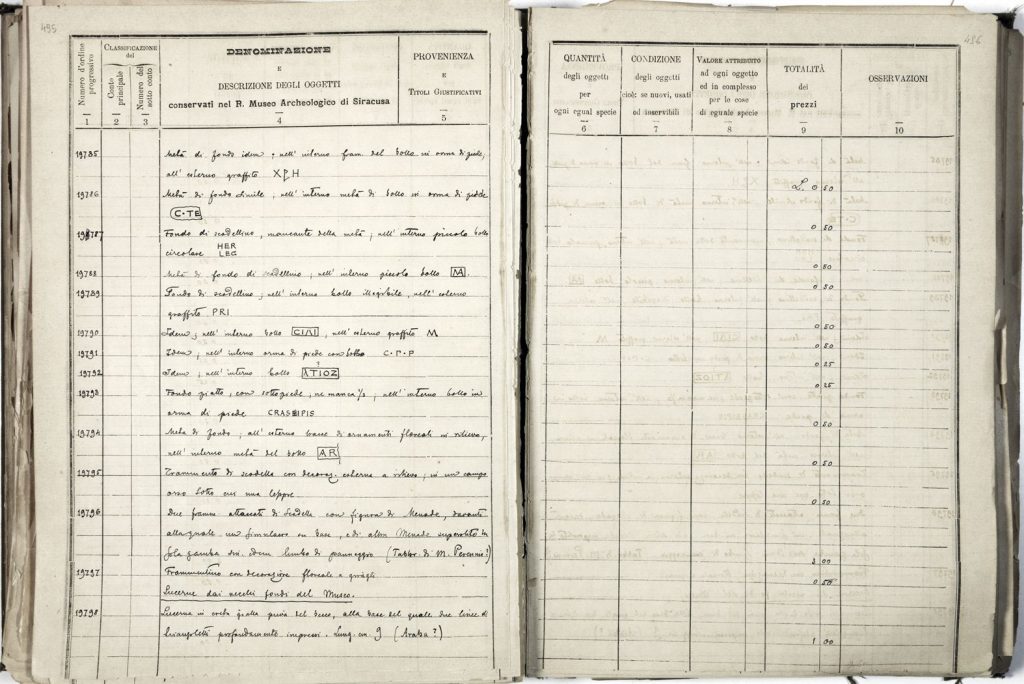 495
Numero d'ordine progressivo
CLASSIFICAZIONE del
Conto principale
Numero del sotto conto
DENOMINAZIONE
E
DESCRIZIONE DEGLI OGGETTI
conservati nel R. Museo Archeologico di Siracusa
PROVENIENZA
E
TITOLI GIUSTIFICATIVI
1 2 3 4 5
19785 Metà di fondo idem; nell'interno fram. del bollo in orma di piede,
all'esterno graffito XPH
19786 Metà di fondo simile, nell'interno metà di bollo in orma di piede
C·TE
19787 Fondo di scodellino, mancante della metà; nell'interno piccolo bollo
circolare HER
LEG
19788 Metà di fondo di scodellino; nell'interno piccolo bollo
19789 Fondo di scodellino; nell'interno bollo illegibile, nell'esterno
graffito PRI
19790 Idem; nell'interno bollo, nell'esterno graffito M
19791 Idem; nell'interno orma di piede con bollo C·Γ·P
19792 Idem; nell'interno bollo ATIOZ
19793 Fondo piatto, con sottopiede, ne manca 1/2; nell'interno bollo in
orma di piede
19794 Metà di fondo, all'esterno tracce di ornamenti floreali in rilievo,
nell'interno metà del bollo AR
19795 Frammento di scodella con decoraz. esterna a rilievo; in un campo
orso sotto cui una lepre.
19796 Due framm. attaccati di scodella con figura di Menade, davanti
alla quale un simulacro su base, e di altra Menade superstite la
sola gamba sin. idem lembo di panneggio (Fabbr. di M. Perennio?)
19797 Frammentino con decorazione floreale a
Lucerne dai vecchi fondi del Museo.
19798 Lucerna in creta gialla priva del becco, alla base del quale due linee di
triangoletti profondamente impressi. Lung. cm. 9 (Araba?)
496
QUANTITÀ
degli oggetti
per
ogni egual specie
CONDIZIONE
degli oggetti
cioè: se nuovi, usati
od inservibili
VALORE ATTRIBUITO
ad ogni oggetto
ed in complesso
per le cose
di eguale specie
TOTALITÀ
dei
prezzi
OSSERVAZIONI
6 7 8 9 10
L. 0 50
0 50
0 50
0 50
0 50
0 50
0 25
0 25
0 50
0 50
0 50
3 00
0 50
1 00